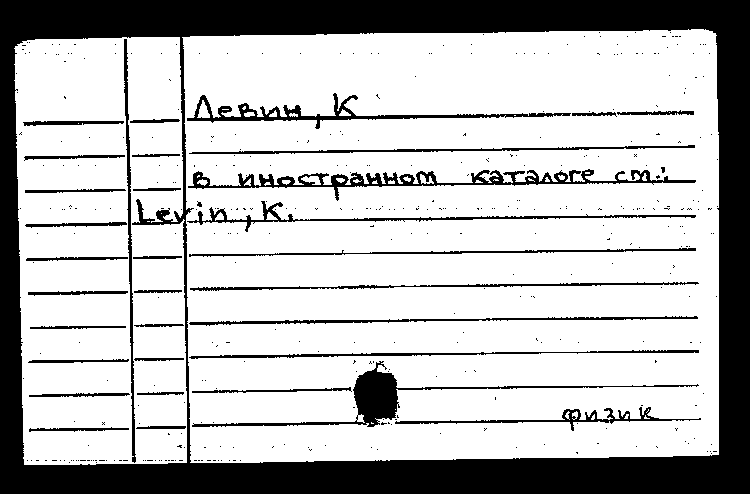 Левин, К
в иностранном каталоге см.:
Levin, K.
физик